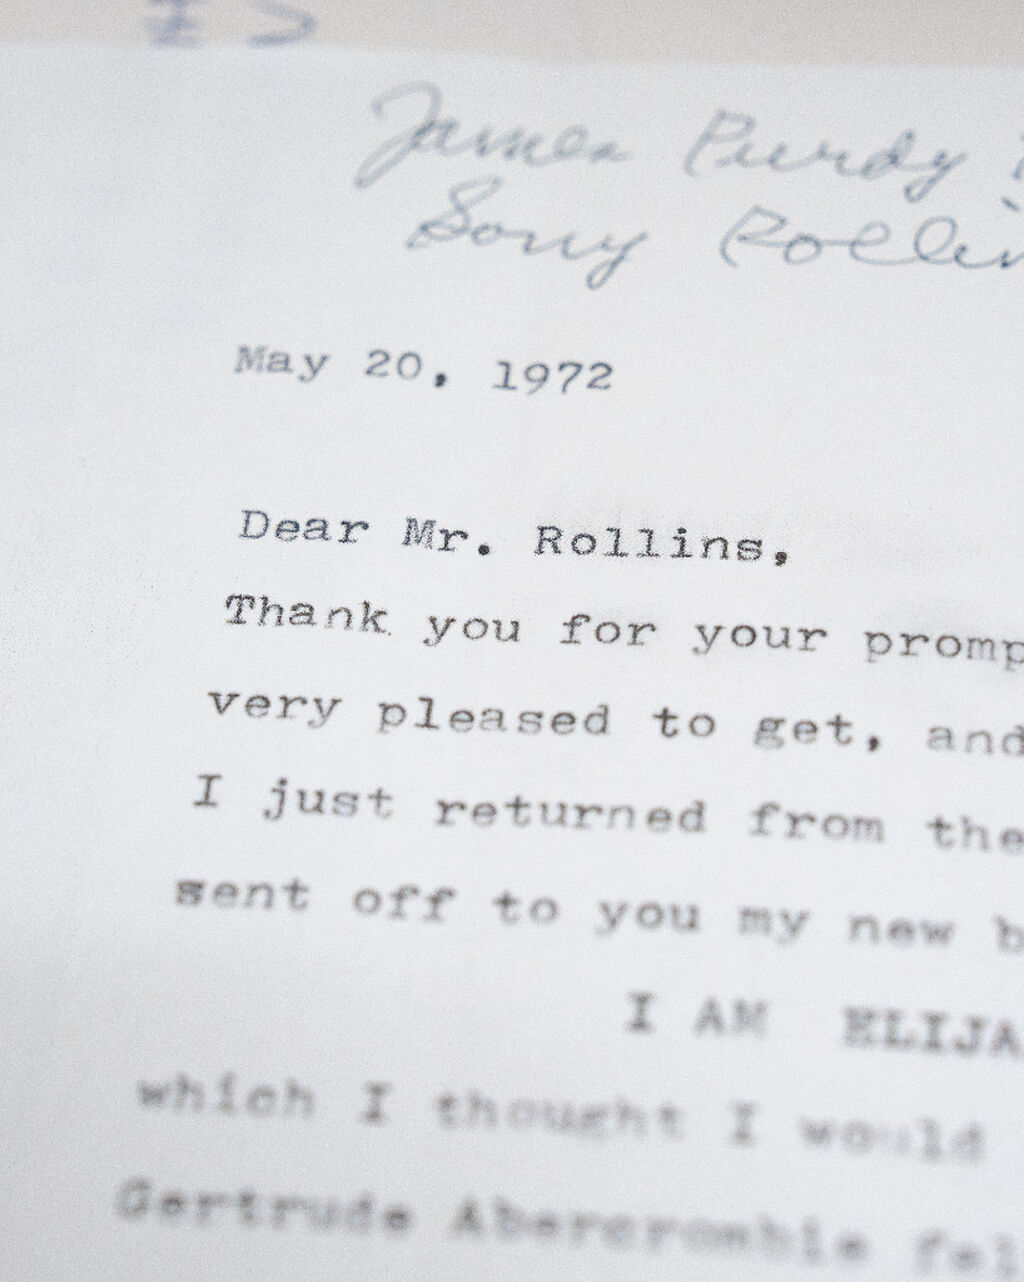 James Purdy
Sonny Rollin
May 20, 1972
Dear Mr. Rollins,
Thank you for your promp
very pleased to get, and
I just returned from the
sent off to you my new b
I AM ELIJA
which I thought I would
Gertrude Abercrombie fel